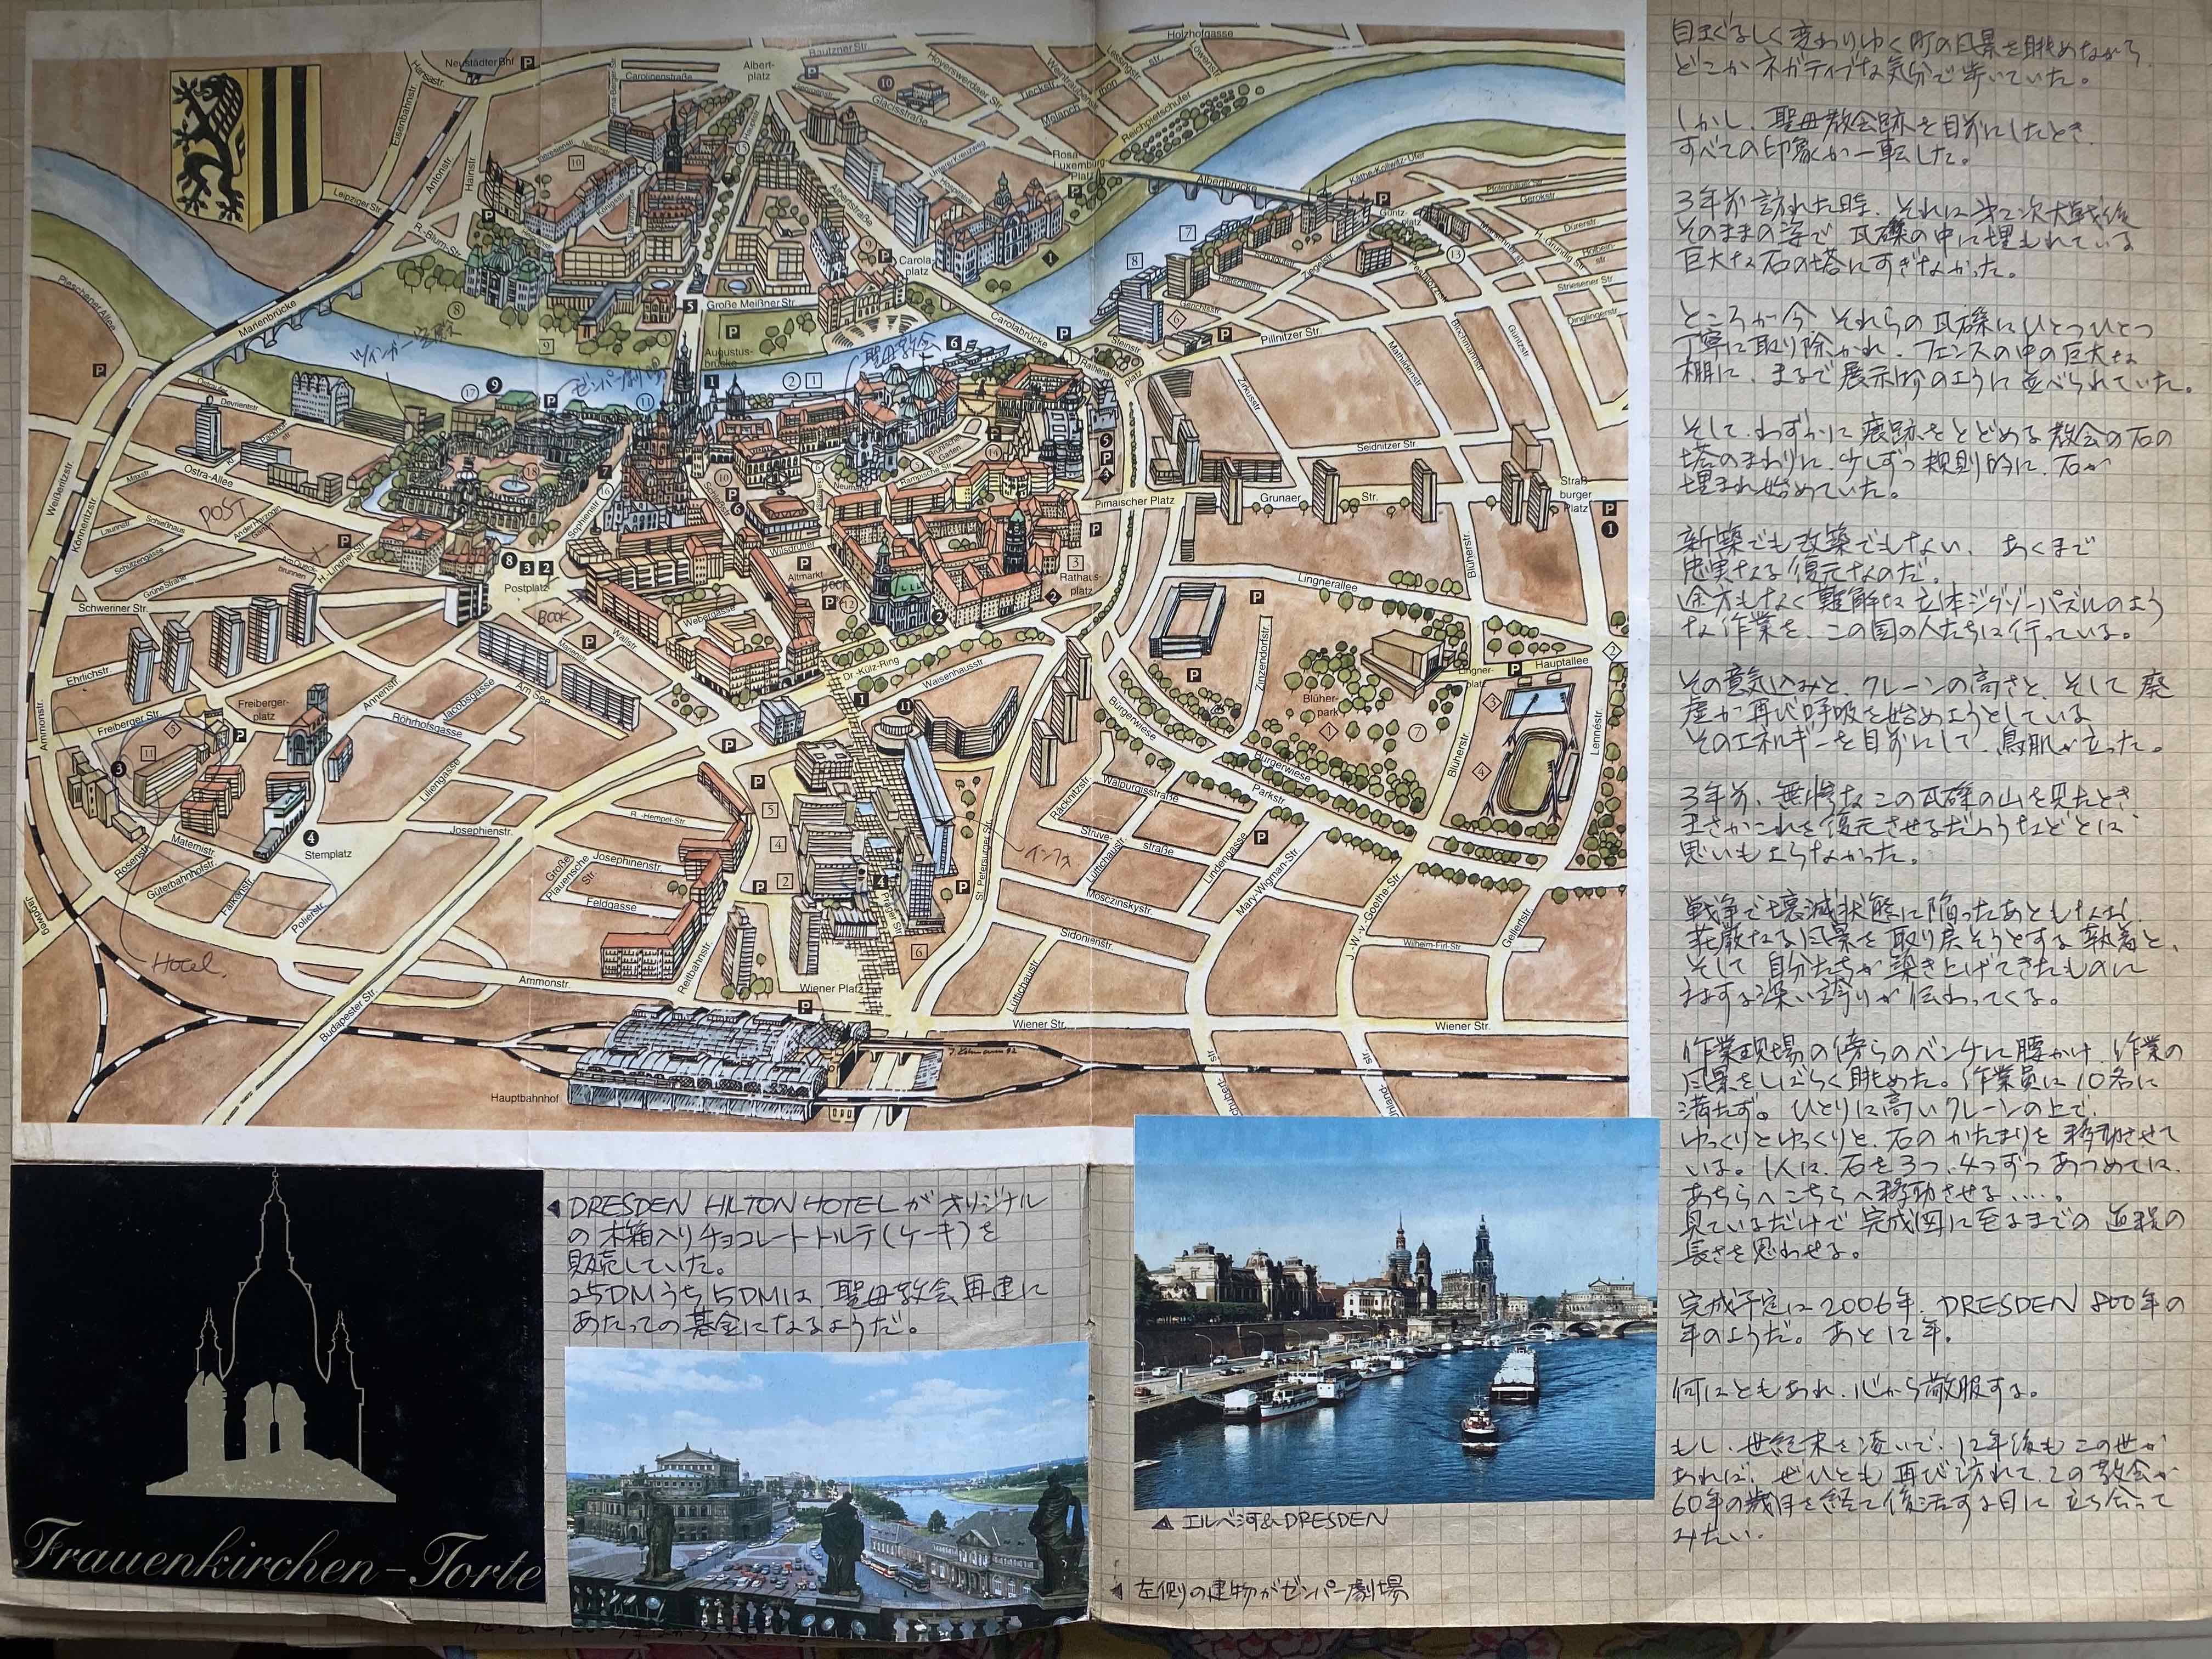 Neustädter Bhf
Hansastr.
Carolinenstraße
Albert-
platz
Bautzner Str.
Holzhofgasse
Hoyerswerdaer Str.
Lessingstr.
Löwenstr.
Weintraubenstr.
Tieckstr.
Melanch
thon
Glacisstraße
Reichpietschufer
Eisenbahnstr.
Antonstr.
Hainstr.
Leipziger Str.
R.-Blum-Str.
Theresienstr.
Königstr.
Albertstraße
Unterer Kreuzweg
Hospitalstr.
Rosa
Luxemburg
Platz
Albertbrücke
Käthe-Kollwitz-Ufer
Pfotenhauer Str.
Gerokstr.
Dürerstr.
Holbein-
str.
Striesener Str.
Dinglingerstr.
Güntz-
platz
Ziegelstr.
Carola-
platz
Große Meißner Str.
Augustus-
brücke
Carolabrücke
Marienbrücke
Pieschener Allee
Steinstr.
Rathenau
platz
Pillnitzer Str.
Mathildenstr.
Blochmannstr.
Güntzstr.
Zirkusstr.
ツインガー宮殿
ゼンパー劇場
聖母教会
Ostraufer
Devrientstr.
Ostra-Allee
Maxstr.
Weißeritzstr.
Könneritzstr.
Schützengasse
Grüne Straße
H.-Lindner Str.
POST
Schweriner Str.
Sophienstr.
Schloßstr.
Neumarkt
Rampische Str.
Pirnaischer Platz
Grunaer Str.
Seidnitzer Str.
Straß
burger
Platz
Wilsdruffer
Altmarkt
BOOK
Postplatz
BOOK
Rathaus-
platz
Lingnerallee
Blüherstr.
Webergasse
Wallstr.
Marienstr.
Dr.-Külz-Ring
Waisenhausstr.
Zinzendorfstr.
Blüher-
park
Lingner-
platz
Hauptallee
Ehrlichstr.
Freiberger Str.
Freiberger-
platz
Annenstr.
Am See
Jacobsgasse
Röhrhofsgasse
Liliengasse
Josephienstr.
Ammonstr.
Bürgerwiese
Bürgerwiese
Parkstr.
Blüherstr.
Lennéstr.
Walpurgisstraße
Räcknitzstr.
Struve-
straße
Lüttichaustr.
Lindengasse
Mary-Wigman-Str.
Mosczinskystr.
Sidonienstr.
J.-W.-v.-Goethe-Str.
Wilhelm-Firl-Str.
Gellertstr.
St. Petersburger Str.
インフォ
Prager Str.
R.-Hempel-Str.
Josephinenstr.
Große
Plauensche
Str
Feldgasse
Reitbahnstr.
Sternplatz
Rosenstr.
Maternistr.
Güterbahnhofstr.
Falkenstr.
Polierstr.
Jagdweg
Hotel.
Ammonstr.
Budapester Str.
Wiener Platz
Wiener Str.
Wiener Str.
Lüttichaustr.
Hauptbahnhof
Frauenkirchen-Torte
DRESDEN HILTON HOTEL が オリジナル
の 木箱入り チョコレートトルテ(ケーキ)を
販売していた。
25DMうち 5DMは、聖母教会再建に
あたっての 基金になるようだ。
エルベ河&DRESDEN
左側の建物がゼンパー劇場
目まぐるしく 変わりゆく 町の風景を眺めながら、
どこか ネガティブな気分で 歩いていた。
しかし、聖母教会跡を目前にしたとき、
すべての印象が一転した。
3年前訪れた時、それは 第二次大戦後
そのままの姿で 瓦礫の中に埋もれている
巨大な石の塔にすぎなかった。
ところが今 それらの瓦礫は ひとつひとつ
丁寧に取り除かれ、フェンスの中の巨大な
棚に、まるで 展示物のように並べられていた。
そして、わずかに 痕跡をとどめる 教会の石の
塔のまわりに、少しずつ規則的に、石が
埋まれ始めていた。
新築でも改築でもない、あくまで
忠実なる復元なのだ。
途方もなく 難解な 立体ジグソーパズルのよう
な作業を、この国の人たちは行っている。
その意気込みと、クレーンの高さと、そして 廃
墟が再び呼吸を始めようとしている
そのエネルギーを目前にして、鳥肌が立った。
3年前、無惨なこの瓦礫の山を見たとき
まさかこれを復元させるだろうなどとは
思いもよらなかった。
戦争で壊滅状態に陥ったあともなお、
荘厳なる風景を取り戻そうとする執着と、
そして 自分たちが築き上げてきたものに
対する深い誇りが伝わってくる。
作業現場の傍らのベンチに腰かけ、作業の
風景をしばらく眺めた。作業員は10名に
満たず。ひとりは高いクレーンの上で、
ゆっくりとゆっくりと、石のかたまりを移動させて
いる。1人は、石を3つ、4つずつ あつめては、
あちらへこちらへ移動させる……。
見ているだけで 完成図に至るまでの 道程の
長さを思わせる。
完成予定は 2006年、DRESDEN 800年の
年のようだ。あと12年。
何はともあれ、心から敬服する。
もし、世紀末を凌いで、12年後も この世が
あれば、ぜひとも 再び訪れて、この教会が
60年の歳月を経て復活する日に 立ち会って
みたい。